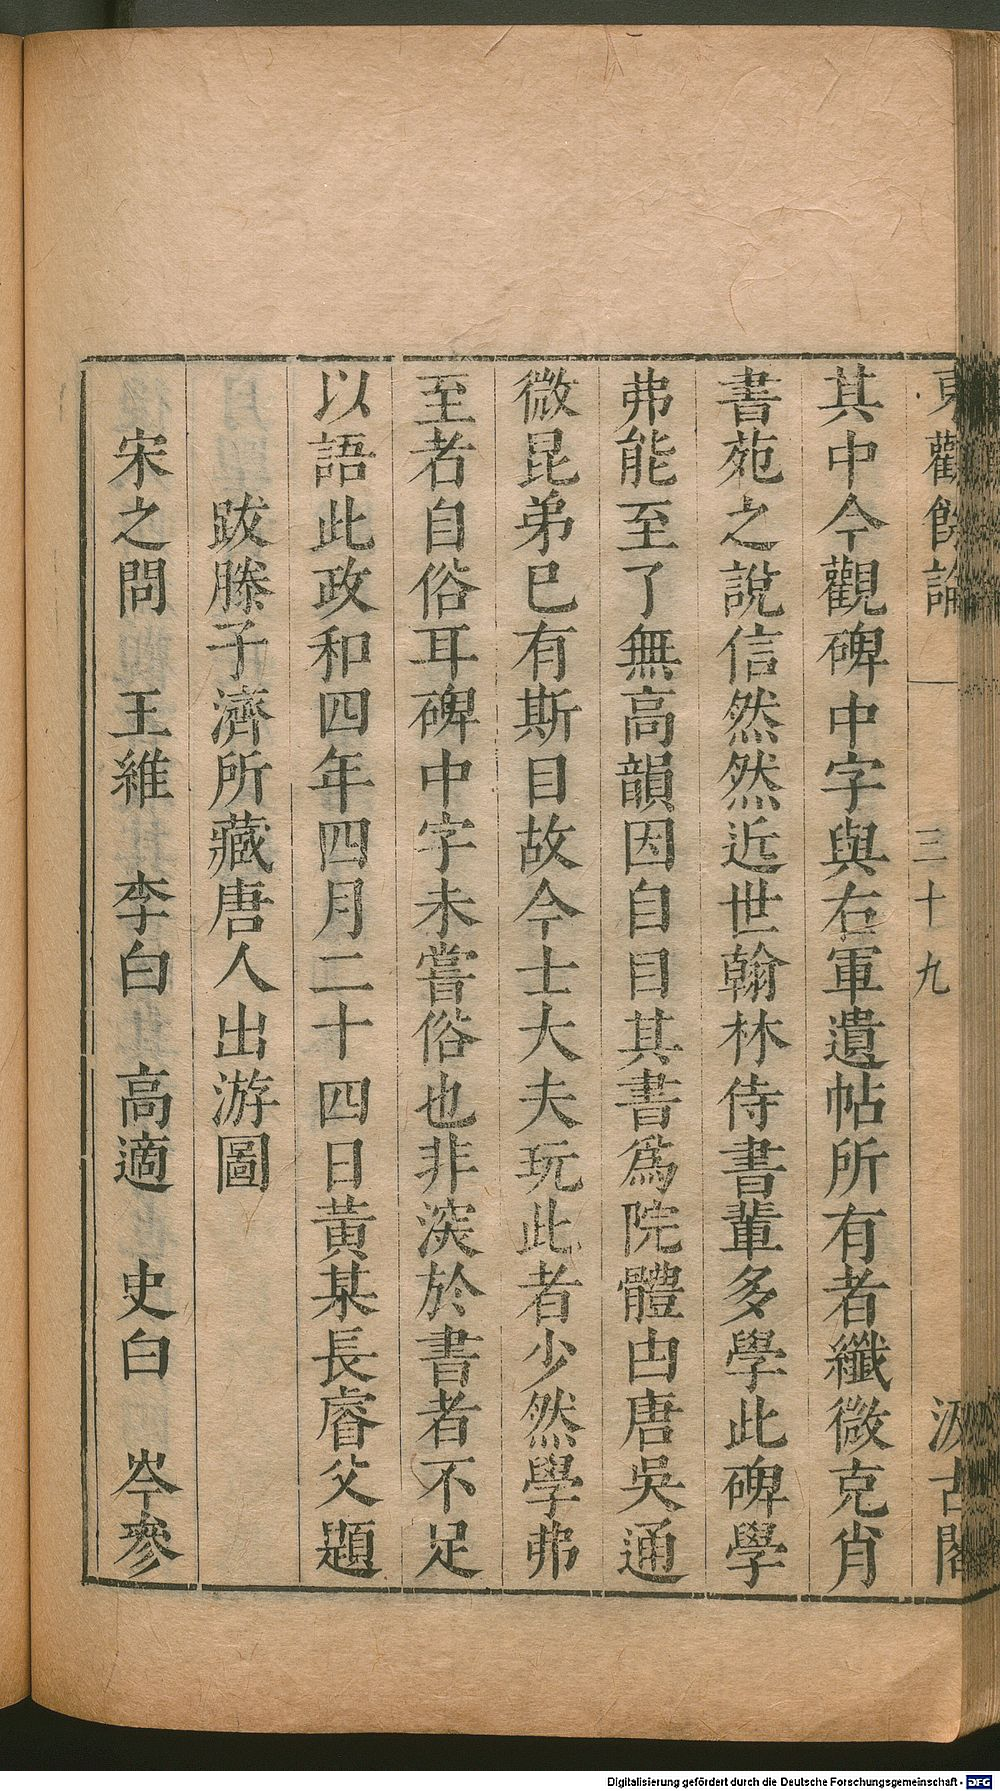 東觀餘論 三十九 汲古閣
其中今觀碑中字與右軍遺帖所有者纖微克肖
書苑之說信然然近世翰林侍書輩多學此碑學
弗能至了無高韻因自目其書爲院體由唐吳通
微昆弟已有斯目故今士大夫玩此者少然學弗
至者自俗耳碑中字未嘗俗也非深於書者不足
以語此政和四年四月二十四日黃某長睿父題
跋滕子濟所藏唐人出游圖
宋之問 王維 李白 高適 史白 岑參
Digitalisierung gefördert durch die Deutsche Forschungsgemeinschaft - DFG